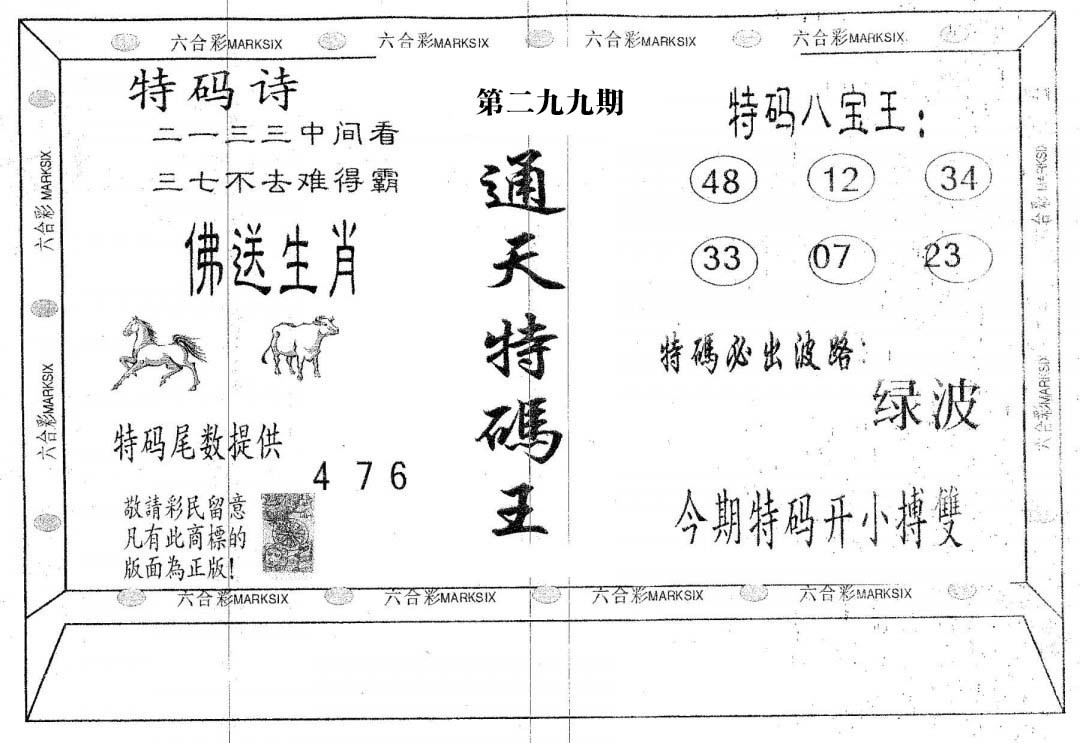 六合彩MARKSIX 六合彩MARKSIX 六合彩MARKSIX 六合彩MARKSIX
特码诗
二一三三中间看
三七不去难得霸
佛送生肖
特码尾数提供
4 7 6
敬請彩民留意
凡有此商標的
版面為正版!
第二九九期
通天特碼王
特码八宝王:
48 12 34
33 07 23
特碼必出波路:
绿波
今期特码开小搏雙
六合彩MARKSIX
六合彩MARKSIX
六合彩MARKSIX
六合彩MARKSIX
六合彩MARKSIX 六合彩MARKSIX 六合彩MARKSIX 六合彩MARKSIX